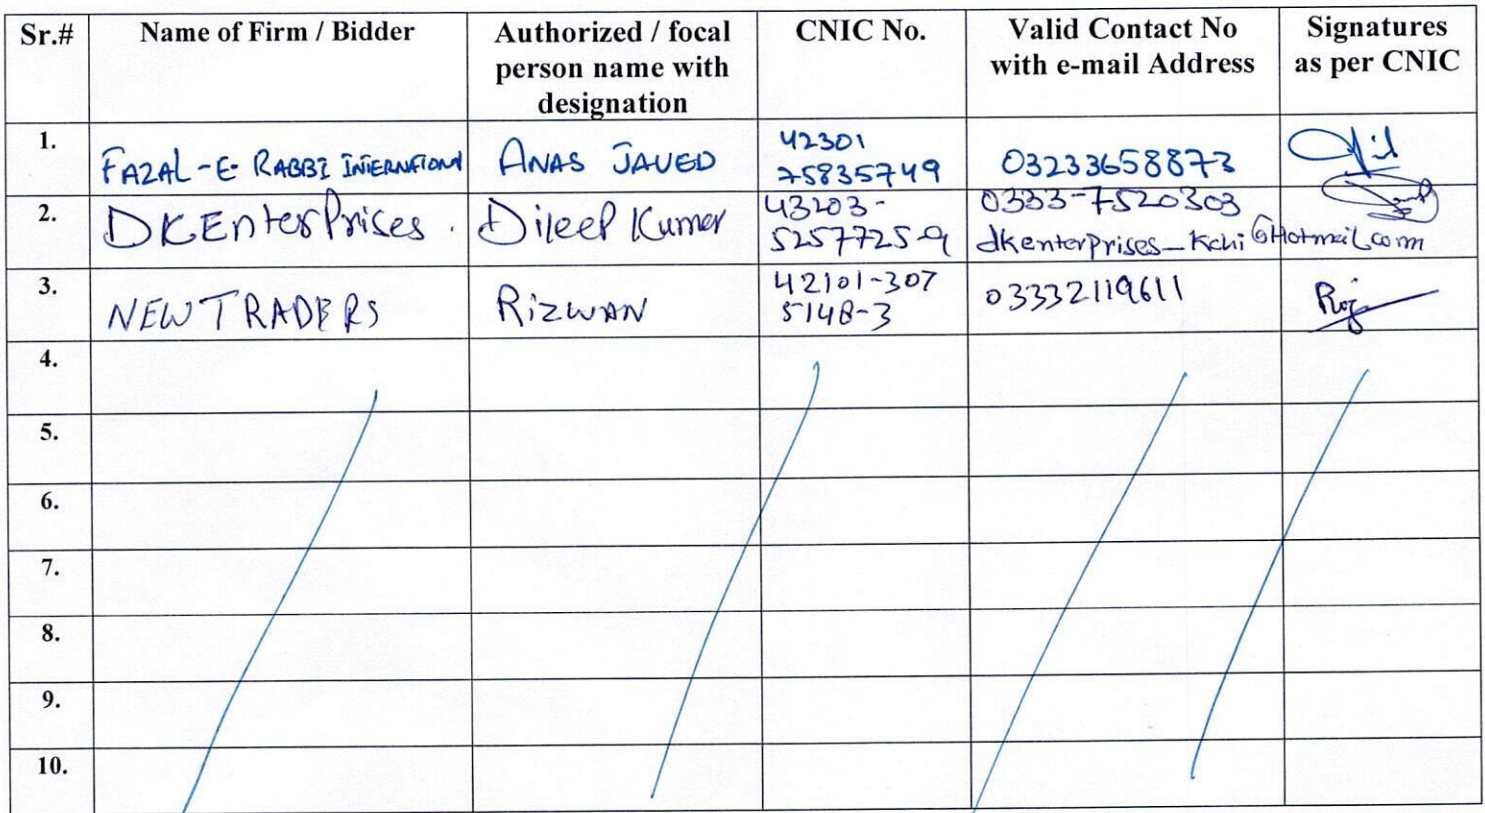 Sr.#
Name of Firm / Bidder
Authorized / focal
person name with
designation
CNIC No.
Valid Contact No
with e-mail Address
Signatures
as per CNIC
1.
FAZAL-E-RABBI INTERNATIONAL
ANAS JAVED
42301
75835749
03233658873
2.
DKEnterPrises.
Dileep Kumer
43203-
5257725-9
0333-7520303
dkenterprises_Kchi@Hotmail.com
3.
NEW TRADERS
RizWAN
42101-307
5148-3
03332119611
4.
5.
6.
7.
8.
9.
10.